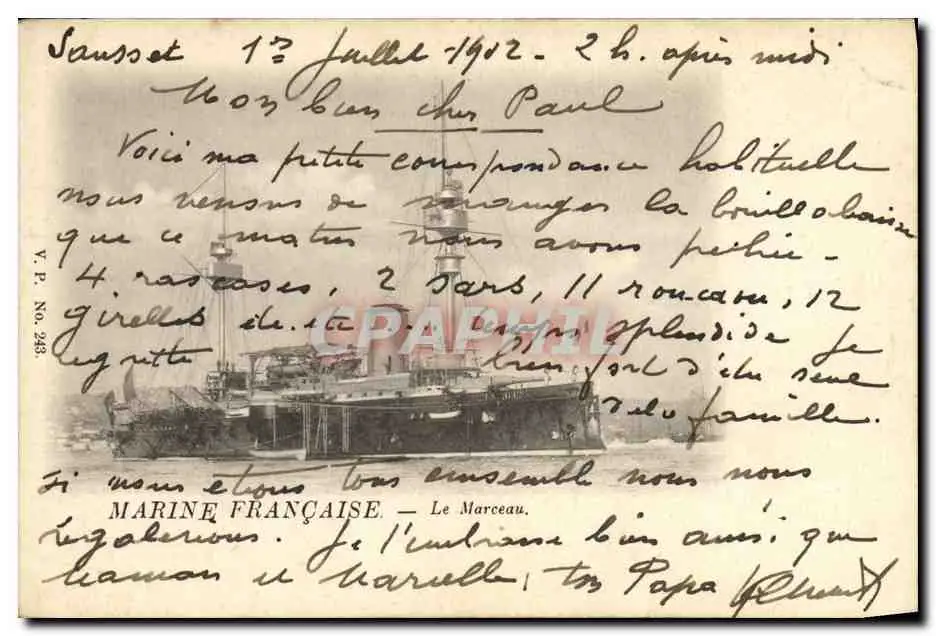 Sausset 1er Juillet 1902 - 2 h. après midi
Mon bien cher Paul
Voici ma petite correspondance habituelle
nous venons de manger la bouillabaisse
que ce matin nous avons pêchée -
4 rascasses, 2 sars, 11 roucaou, 12
girelles etc. etc... temps splendide Je
regrette bien fort d'être seul
de la famille.
Si nous etions tous ensemble nous nous
regalerions. Je t'embrasse bien ainsi que
Maman et Marcelle, ton Papa
MARINE FRANÇAISE. — Le Marceau.
V. P. No. 243.
CPAPHIL